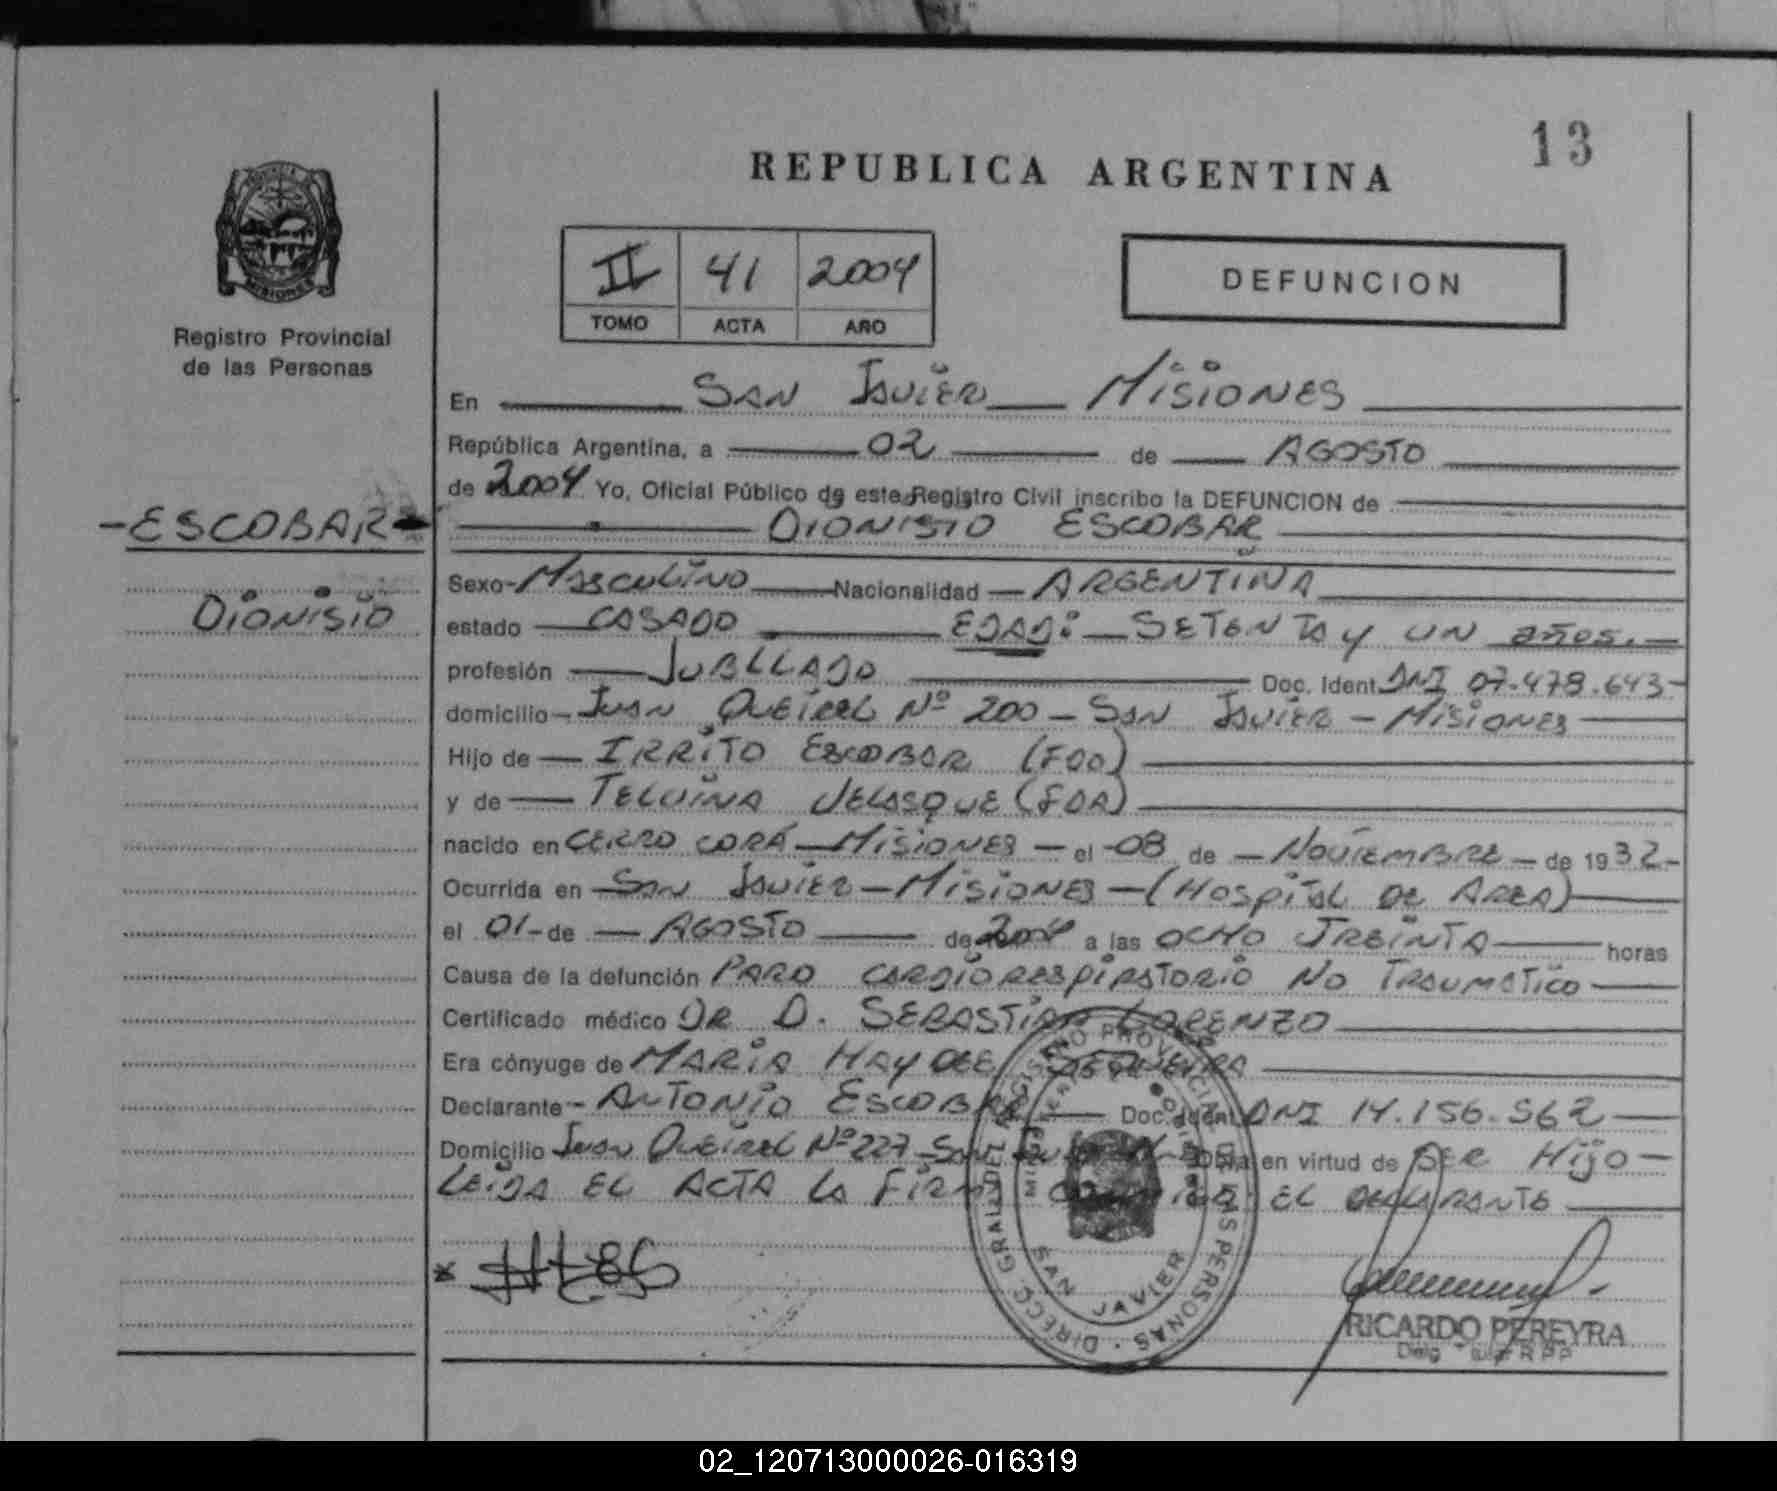 13
REPUBLICA ARGENTINA
II 41 2004
TOMO ACTA AÑO
DEFUNCION
MISIONES
Registro Provincial
de las Personas
En SAN JAVIER MISIONES
República Argentina, a 02 de AGOSTO
de 2004 Yo, Oficial Público de este Registro Civil inscribo la DEFUNCION de
-ESCOBAR-
DIONISIO ESCOBAR
DIONISIO
Sexo- MASCULINO Nacionalidad ARGENTINA
estado CASADO EDAD: SETENTA y UN años.
profesión JUBLLADO Doc. Ident. DNI 07.478.643-
domicilio- JUAN QUEIREL Nº 200 - SAN JAVIER - MISIONES
Hijo de IRRITO ESCOBAR (FDO)
y de TELVINA VELASQUE (FDA)
nacido en CERRO CORÁ - MISIONES - el 08 de NOVIEMBRE de 1932-
Ocurrida en SAN JAVIER - MISIONES - (HOSPITAL DE AREA)
el 01 - de AGOSTO de 2004 a las OCHO TREINTA horas
Causa de la defunción PARO CARDIORESPIRATORIO NO TRAUMATICO
Certificado médico DR D. SEBASTIAN LORENZO
Era cónyuge de MARIA HAYDEE SEQUEIRA
Declarante- ANTONIO ESCOBAR Doc. Ident. DNI 14.156.562
Domicilio JUAN QUEIREL Nº 227 - SAN JAVIER - Obra en virtud de SER HIJO -
LEIDA EL ACTA LA FIRMA CONMIGO: EL DECLARANTE
DIRECC. GRAL. DEL REGISTRO PROVINCIAL DE LAS PERSONAS
SAN JAVIER
RICARDO PEREYRA
02_120713000026-016319